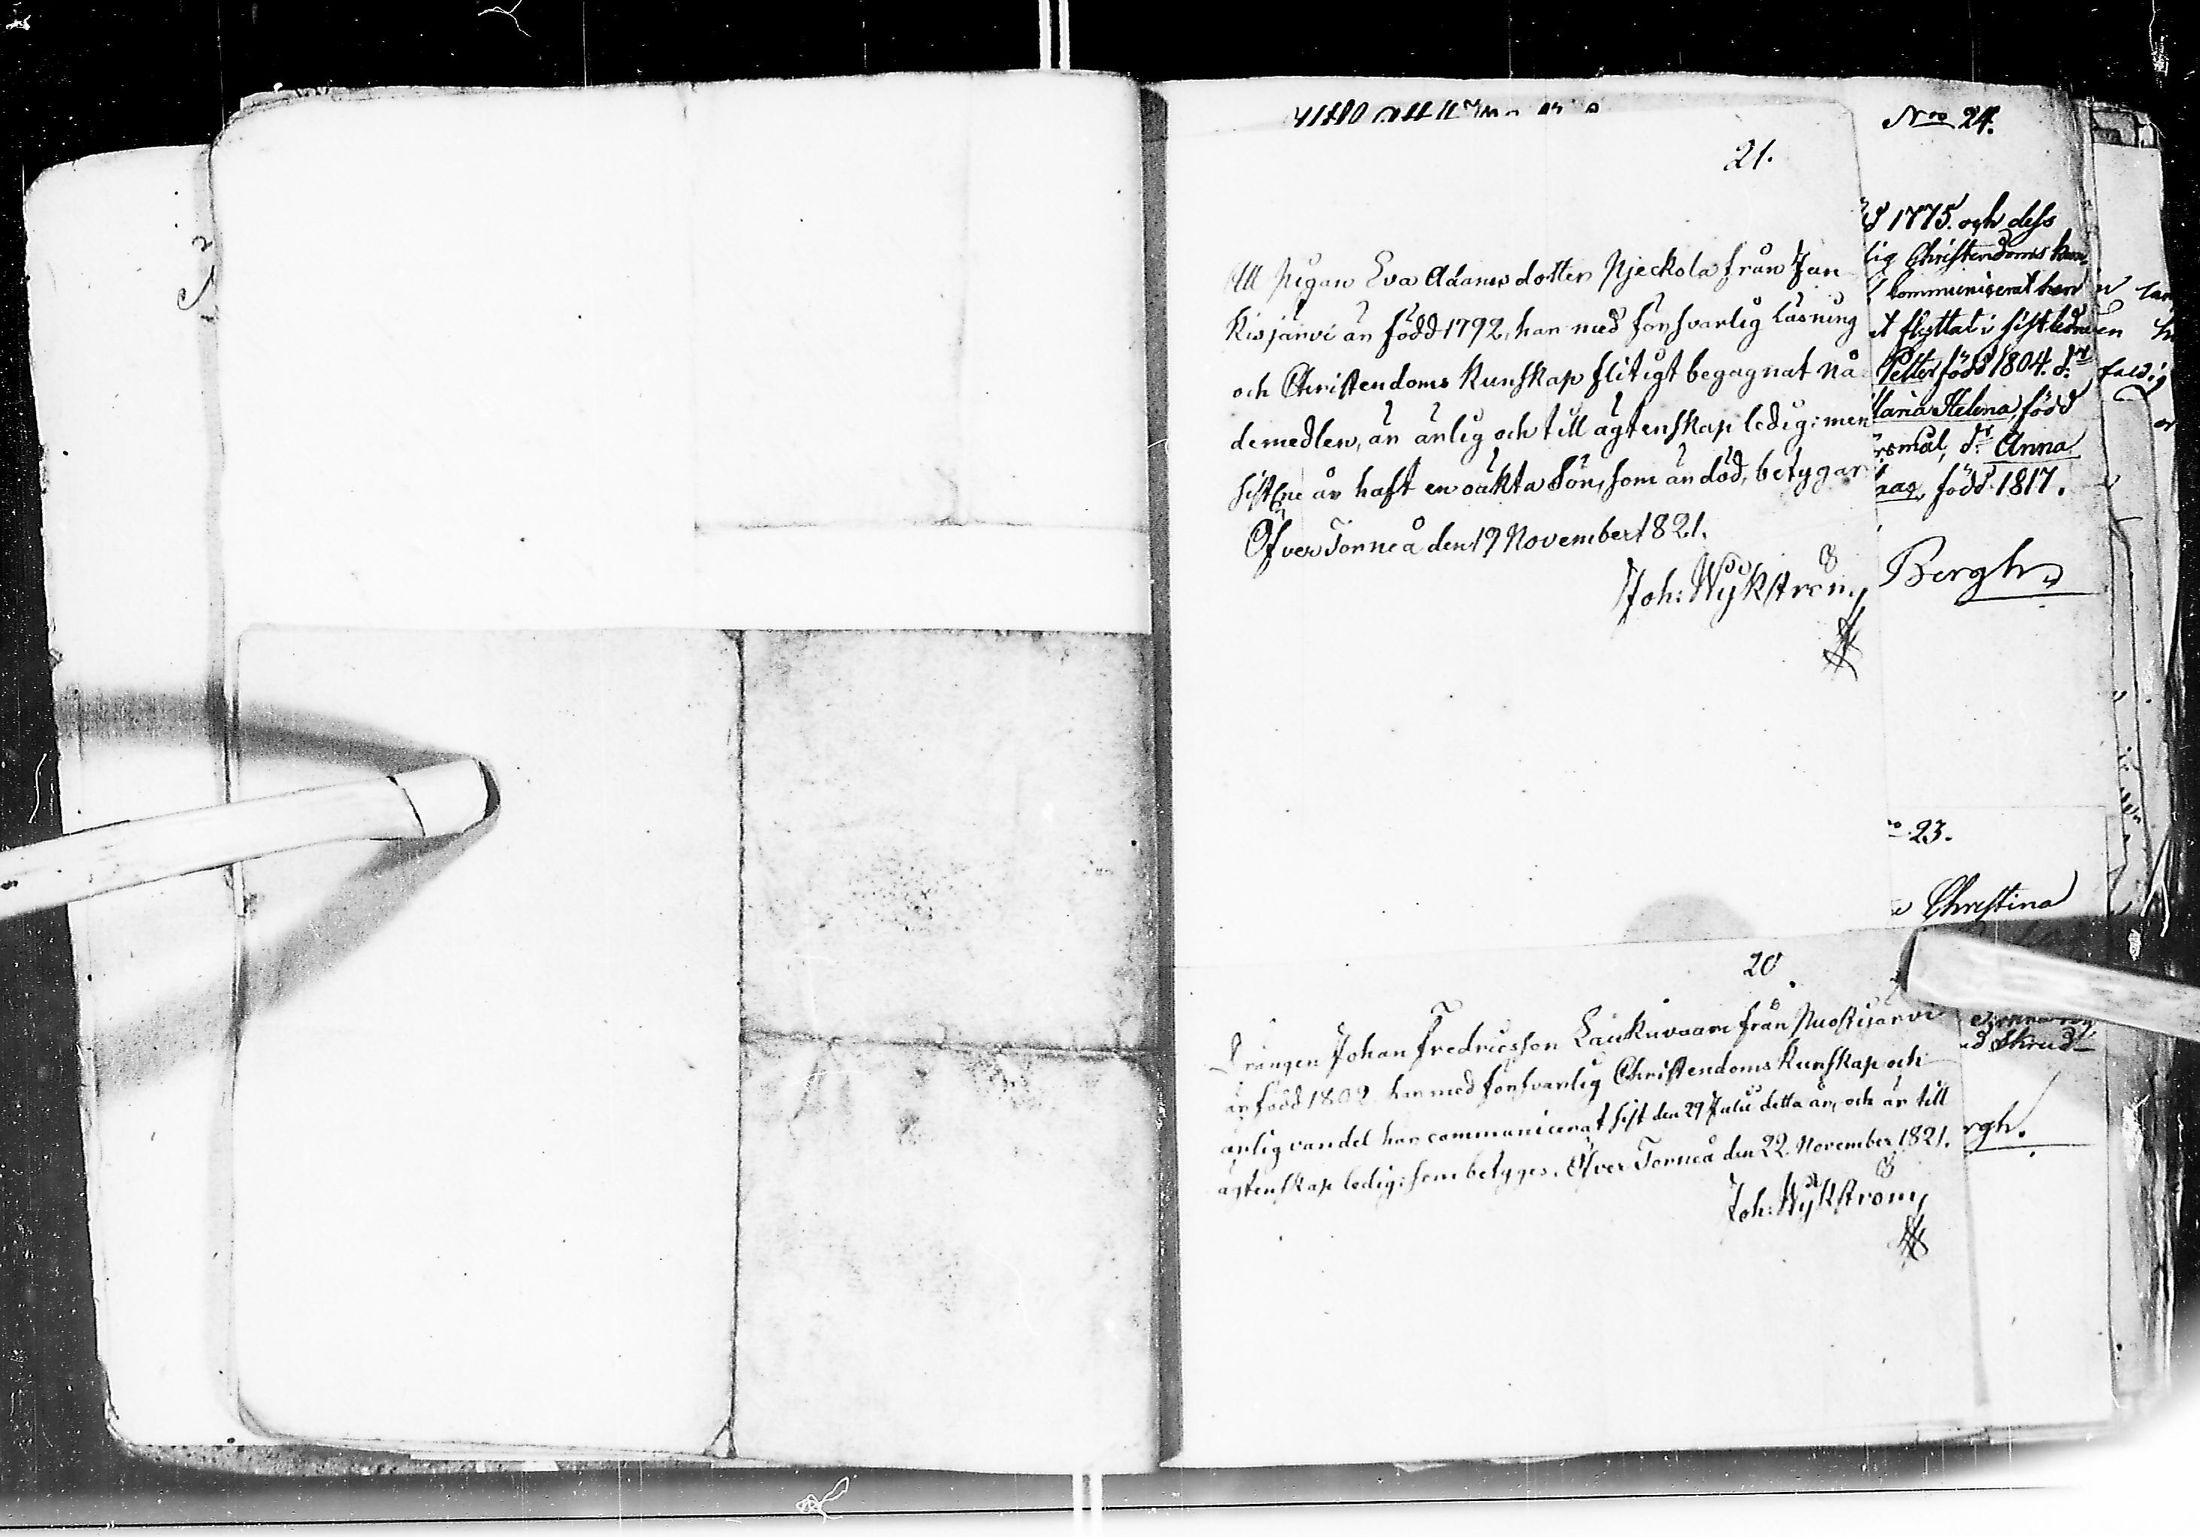 21.
Att Pigan Eva Adamsdotter Njeckola från Jun
kisjärvi är född 1792, har med försvarlig läsning
och Christendoms kunskap flitigt begagnat nå-
demedlen, är ärlig och till ägtenskap ledig: men
sistne år haft en oäkta Son, som är död, betygar
ÖfverTorneå den 19 November 1821.
Joh: Wykström
20
Drängen Johan Fredricsson Laukuvaara från Puostijärvi
är född 1802 har med försvarlig Christendoms kunskap och
ärlig vandel har communicerat sist den 29 Julii detta år, och är till
ägtenskap ledig: som betyges. Öfver Torneå den 22 November 1821.
Joh: Wykström
Nro 24.
1775. och dess
lig Christendoms kun-
communicerat har
t flyttat i sistledne
Petter född 1804. dr
Maria Helena, född
rsmål, dr Anna
född 1817.
Bergh
23.
Christina
rgh.